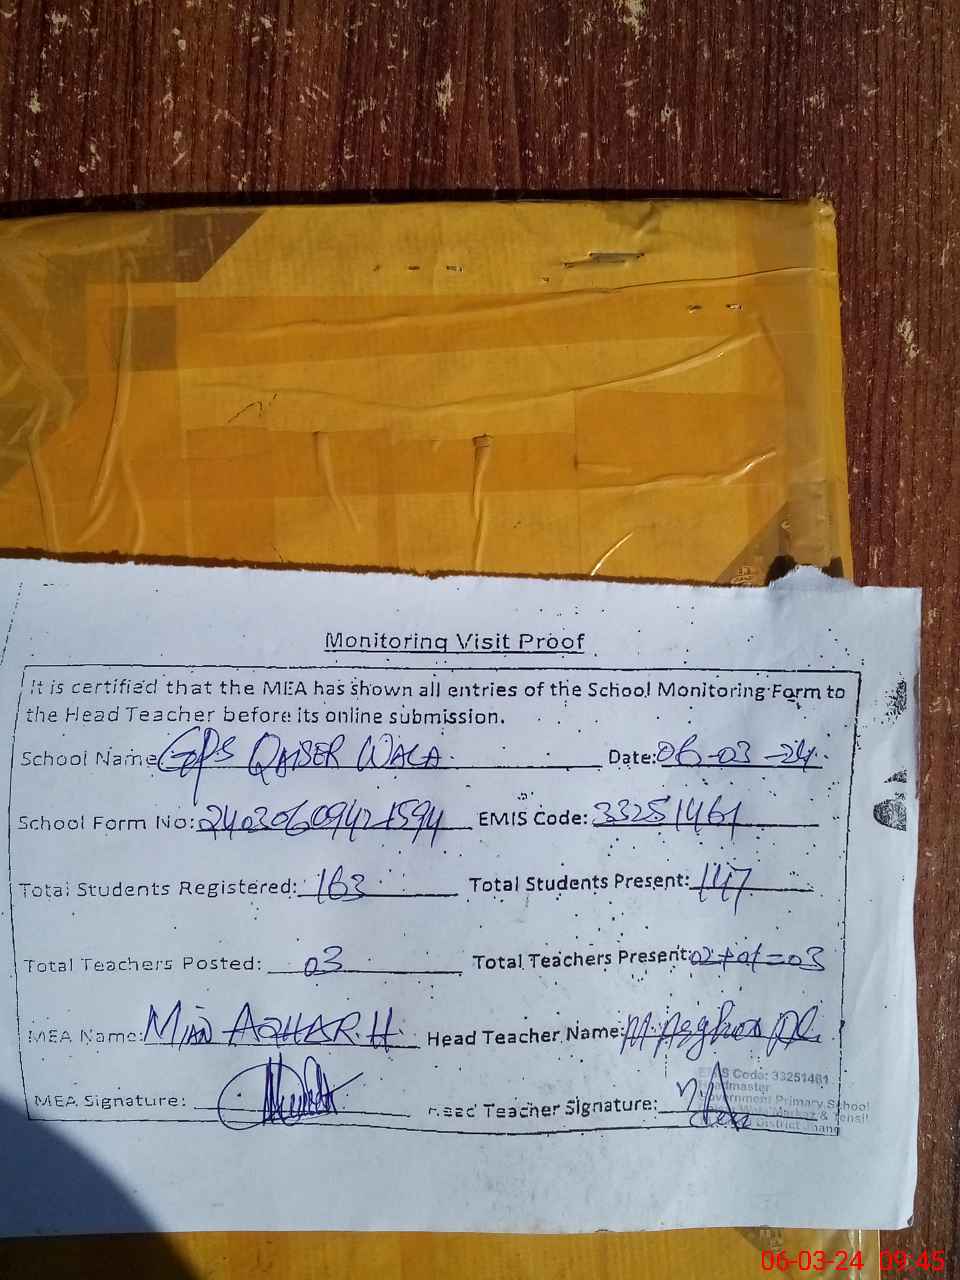 Monitoring Visit Proof
It is certified that the MEA has shown all entries of the School Monitoring Form to
the Head Teacher before its online submission.
School Name GPS QAISER WALA. Date: 06-03-24.
School Form No: 24030609421594 EMIS Code: 33251461
Total Students Registered: 163 Total Students Present: 147
Total Teachers Posted: 03 Total Teachers Present: 02+01=03
MEA Name: MIAN AZHAR.H Head Teacher Name: M.Asghar
MEA Signature: Head Teacher Signature:
EMIS Code: 33251461
Headmaster
Government Primary School
Markaz & Tehsil
District Jhang
06-03-24 09:45